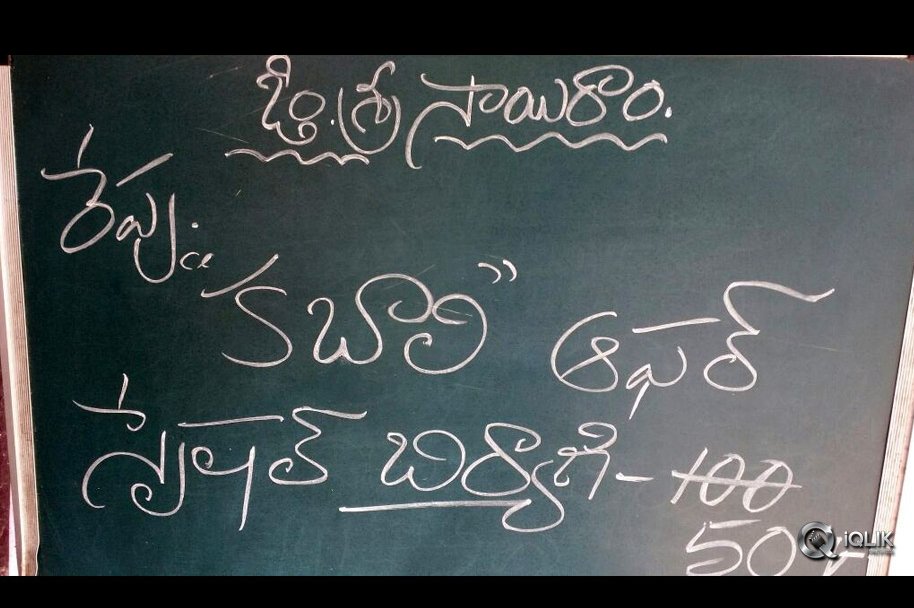 ఓం. శ్రీ సాయిరాం.
రేపు:
"కబాలి" ఆఫర్
స్పెషల్ బిర్యాని - 100
50
iQLIK